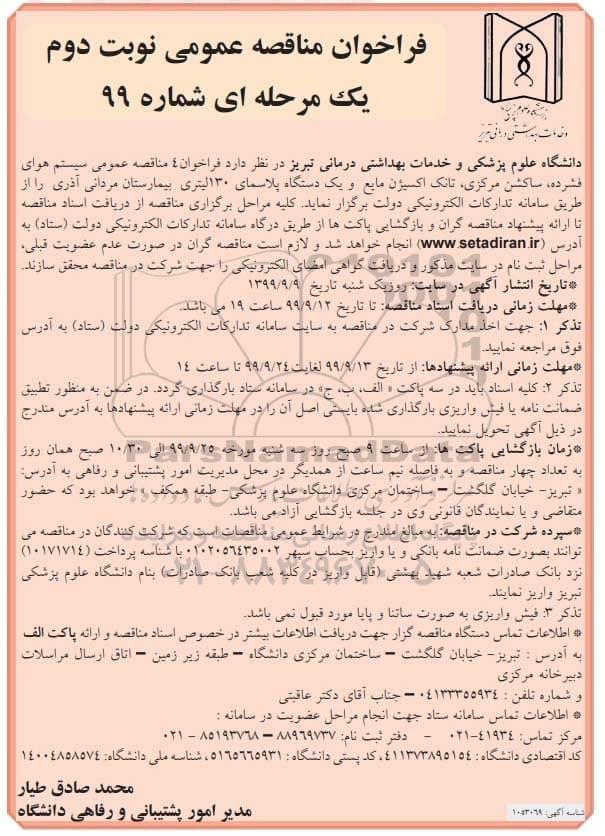 فراخوان مناقصه عمومی نوبت دوم
یک مرحله ای شماره ۹۹
دانشگاه علوم پزشکی
و خدمات بهداشتی درمانی تبریز
دانشگاه علوم پزشکی و خدمات بهداشتی درمانی تبریز در نظر دارد فراخوان۴ مناقصه عمومی سیستم هوای
فشرده، ساکشن مرکزی، تانک اکسیژن مایع و یک دستگاه پلاسمای ۱۳۰لیتری بیمارستان مردانی آذری را از
طریق سامانه تدارکات الکترونیکی دولت برگزار نماید. کلیه مراحل برگزاری مناقصه از دریافت اسناد مناقصه
تا ارائه پیشنهاد مناقصه گران و بازگشایی پاکت ها از طریق درگاه سامانه تدارکات الکترونیکی دولت (ستاد) به
آدرس (www.setadiran.ir) انجام خواهد شد و لازم است مناقصه گران در صورت عدم عضویت قبلی،
مراحل ثبت نام در سایت مذکور و دریافت گواهی امضای الکترونیکی را جهت شرکت در مناقصه محقق سازند.
*تاریخ انتشار آگهی در سایت: روزیک شنبه تاریخ ۱۳۹۹/۹/۹
*مهلت زمانی دریافت اسناد مناقصه: تا تاریخ ۹۹/۹/۱۲ ساعت ۱۹ می باشد.
تذکر ۱: جهت اخذ مدارک شرکت در مناقصه به سایت سامانه تدارکات الکترونیکی دولت (ستاد) به آدرس
فوق مراجعه نمایید.
*مهلت زمانی ارائه پیشنهادها: از تاریخ ۹۹/۹/۱۳ لغایت۹۹/۹/۲۴ تا ساعت ۱۴
تذکر ۲: کلیه اسناد باید در سه پاکت « الف، ب، ج» در سامانه ستاد بارگذاری گردد. در ضمن به منظور تطبیق
ضمانت نامه یا فیش واریزی بارگذاری شده بایستی اصل آن را در مهلت زمانی ارائه پیشنهادها به آدرس مندرج
در ذیل آگهی تحویل نمایید.
*زمان بازگشایی پاکت ها: از ساعت ۹ صبح روز سه شنبه مورخه ۹۹/۹/۲۵ الی ۱۰/۳۰ صبح همان روز
به تعداد چهار مناقصه و به فاصله نیم ساعت از همدیگر در محل مدیریت امور پشتیبانی و رفاهی به آدرس:
« تبریز- خیابان گلگشت – ساختمان مرکزی دانشگاه علوم پزشکی- طبقه همکف » خواهد بود که حضور
متقاضی و یا نمایندگان قانونی وی در جلسه بازگشایی آزاد می باشد.
*سپرده شرکت در مناقصه: به مبالغ مندرج در شرایط عمومی مناقصات است که شرکت کنندگان در مناقصه می
توانند بصورت ضمانت نامه بانکی و یا واریز بحساب سپهر ۰۱۰۲۰۵۶۴۳۵۰۰۲ با شناسه پرداخت (۱۰۱۷۱۷۱۴)
نزد بانک صادرات شعبه شهید بهشتی (قابل واریز در کلیه شعب بانک صادرات) بنام دانشگاه علوم پزشکی
تبریز واریز نمایند.
تذکر ۳: فیش واریزی به صورت ساتنا و پایا مورد قبول نمی باشد.
* اطلاعات تماس دستگاه مناقصه گزار جهت دریافت اطلاعات بیشتر در خصوص اسناد مناقصه و ارائه پاکت الف
به آدرس : تبریز- خیابان گلگشت – ساختمان مرکزی دانشگاه – طبقه زیر زمین – اتاق ارسال مراسلات
دبیرخانه مرکزی
و شماره تلفن : ۰۴۱۳۳۳۵۵۹۳۴ – جناب آقای دکتر عاقبتی
* اطلاعات تماس سامانه ستاد جهت انجام مراحل عضویت در سامانه :
مرکز تماس: ۴۱۹۳۴-۰۲۱ - دفتر ثبت نام: ۸۸۹۶۹۷۳۷ – ۸۵۱۹۳۷۶۸ - ۰۲۱
کد اقتصادی دانشگاه : ۴۱۱۳۷۳۸۹۵۱۵۴ ، کد پستی دانشگاه : ۵۱۶۵۶۶۵۹۳۱ ، شناسه ملی دانشگاه: ۱۴۰۰۴۸۵۸۵۷۴
محمد صادق طیار
مدیر امور پشتیبانی و رفاهی دانشگاه
شناسه آگهی: ۱۰۵۳۰۶۹
ParsNamadData
۰۲۱-۸۸۳۴۹۶۷۰-۵